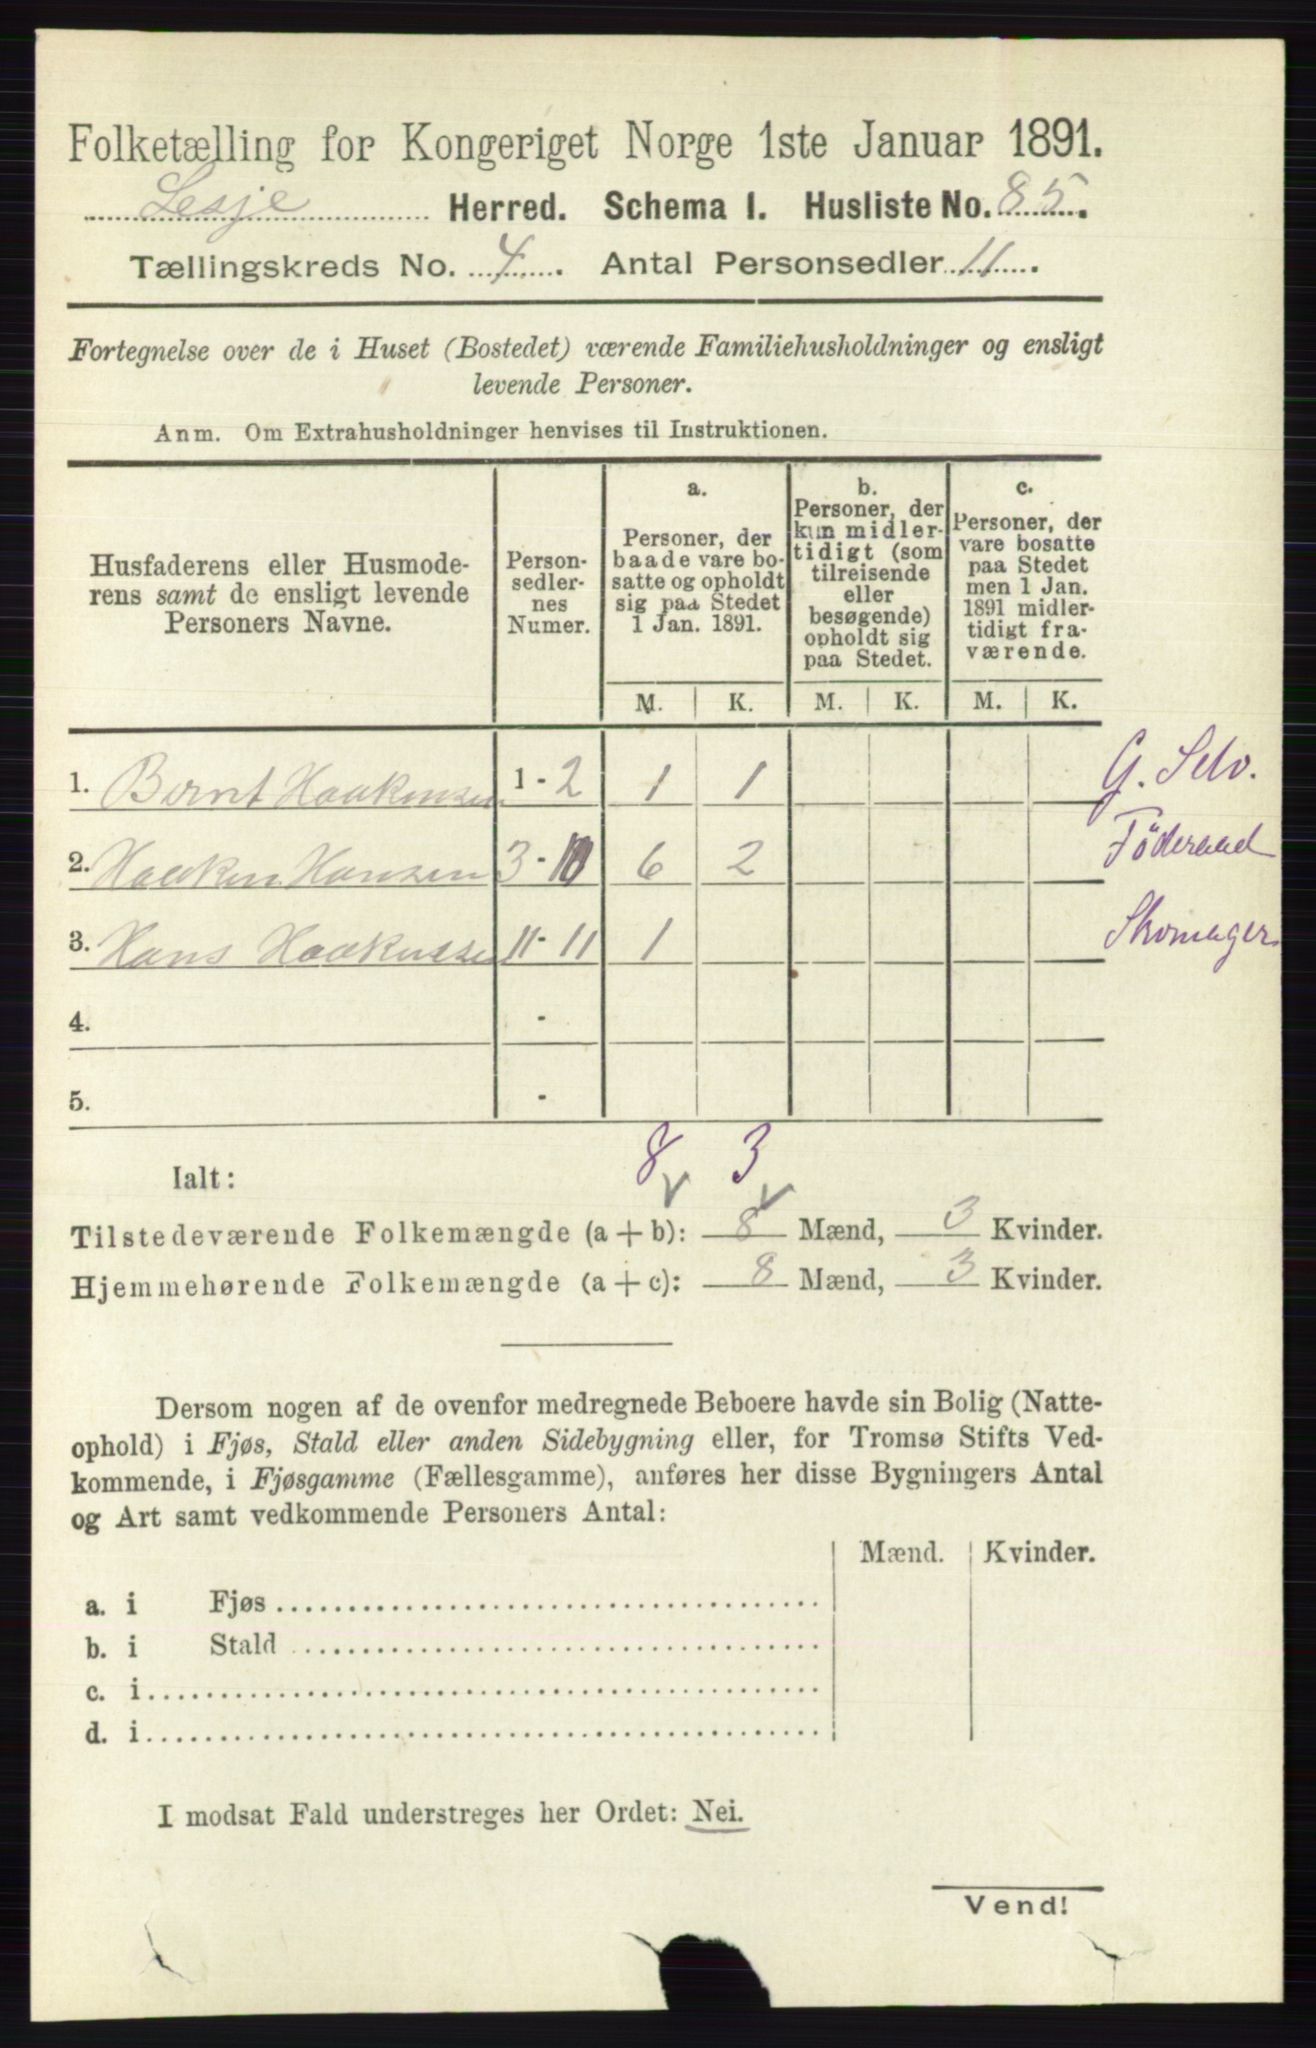 Folketælling for Kongeriget Norge 1ste Januar 1891.
Lesje Herred. Schema I. Husliste No. 85.
Tællingskreds No. 4. Antal Personsedler 11.
Fortegnelse over de i Huset (Bostedet) værende Familiehusholdninger og ensligt
levende Personer.
Anm. Om Extrahusholdninger henvises til Instruktionen.
Husfaderens eller Husmode-
rens samt de ensligt levende
Personers Navne.
Person-
sedler-
nes
Numer.
a.
Personer, der
baade vare bo-
satte og opholdt
sig paa Stedet
1 Jan. 1891.
b.
Personer, der
kun midler-
tidigt (som
tilreisende
eller
besøgende)
opholdt sig
paa Stedet.
c.
Personer, der
vare bosatte
paa Stedet
men 1 Jan.
1891 midler-
tidigt fra-
værende.
M. K. M. K. M. K.
1. Bernt Haakensen 1-2 1 1 G. Selv.
2. Haaken Hansen 3-10 6 2 Föderaad
3. Hans Haakensen 11-11 1 Skomager
4. -
5. -
Ialt: 8 3
Tilstedeværende Folkemængde (a + b): 8 Mænd, 3 Kvinder.
Hjemmehørende Folkemængde (a + c): 8 Mænd, 3 Kvinder.
Dersom nogen af de ovenfor medregnede Beboere havde sin Bolig (Natte-
ophold) i Fjøs, Stald eller anden Sidebygning eller, for Tromsø Stifts Ved-
kommende, i Fjøsgamme (Fællesgamme), anføres her disse Bygningers Antal
og Art samt vedkommende Personers Antal:
Mænd. Kvinder.
a. i Fjøs
b. i Stald
c. i
d. i
I modsat Fald understreges her Ordet: Nei.
Vend!